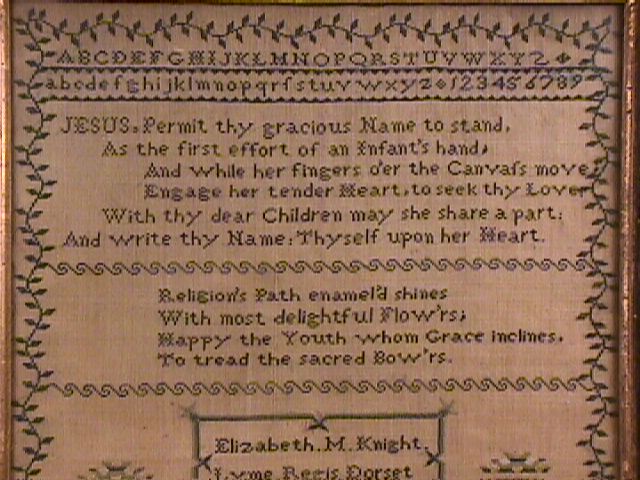 ABCDEFGHIJKLMNOPQRSTUVWXYZ
abcdefghijklmnopqrſstuvwxyz 123456789
JESUS. Permit thy gracious Name to stand,
As the first effort of an Infant's hand;
And while her fingers o'er the Canvaſs move,
Engage her tender Heart, to seek thy Love
With thy dear Children may she share a part;
And write thy Name: Thyself upon her Heart.
Religion's Path enamel'd shines
With most delightful Flow'rs;
Happy the Youth whom Grace inclines,
To tread the sacred Bow'rs.
Elizabeth. M. Knight.
Lyme Regis Dorset